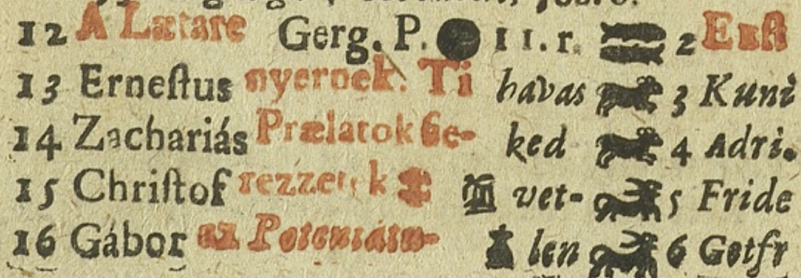 12 A Lætare Gerg. P. 11.r. 2
13 Erneſtus nyernek. Ti havas 3 Kuni
14 Zachariás Prælatok Ge- ked 4 Adri.
15 Chriſtof vet- 5 Fride
16 Gábor az Potentátu- len 6 Gotfr